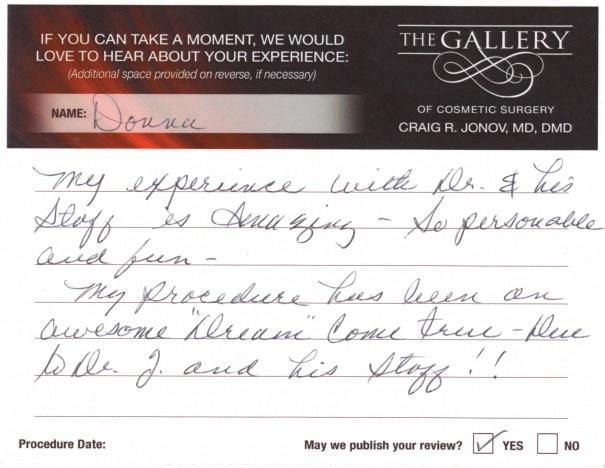 IF YOU CAN TAKE A MOMENT, WE WOULD
LOVE TO HEAR ABOUT YOUR EXPERIENCE:
(Additional space provided on reverse, if necessary)
NAME: Donna
THE GALLERY
OF COSMETIC SURGERY
CRAIG R. JONOV, MD, DMD
My experience with Dr. & his
Staff is Amazing - So personable
and fun -
My Procedure has been an
awesome "Dream" Come true - Due
to Dr. J. and his Staff!!
Procedure Date:
May we publish your review? YES NO